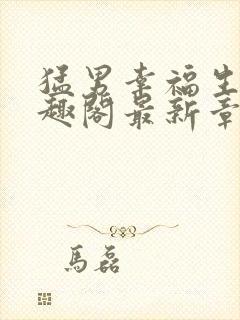 猛男幸福生
趣阁最新章
馬磊